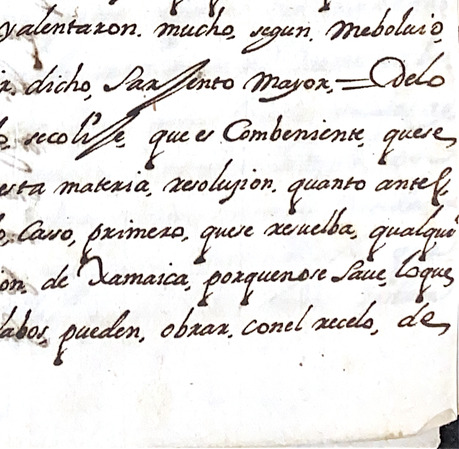 yalentaron. mucho, segun. Mebolvio,
dicho, Sarssento Mayor, = Delo
secolisse, que es Combeniente, quese
esta materia, resolusion. quanto antes,
Caso, primero, quese resuelba, qualqui
on. de Xamaica, porquenose Save, loque
labos, pueden, obrar, conel recelo, de